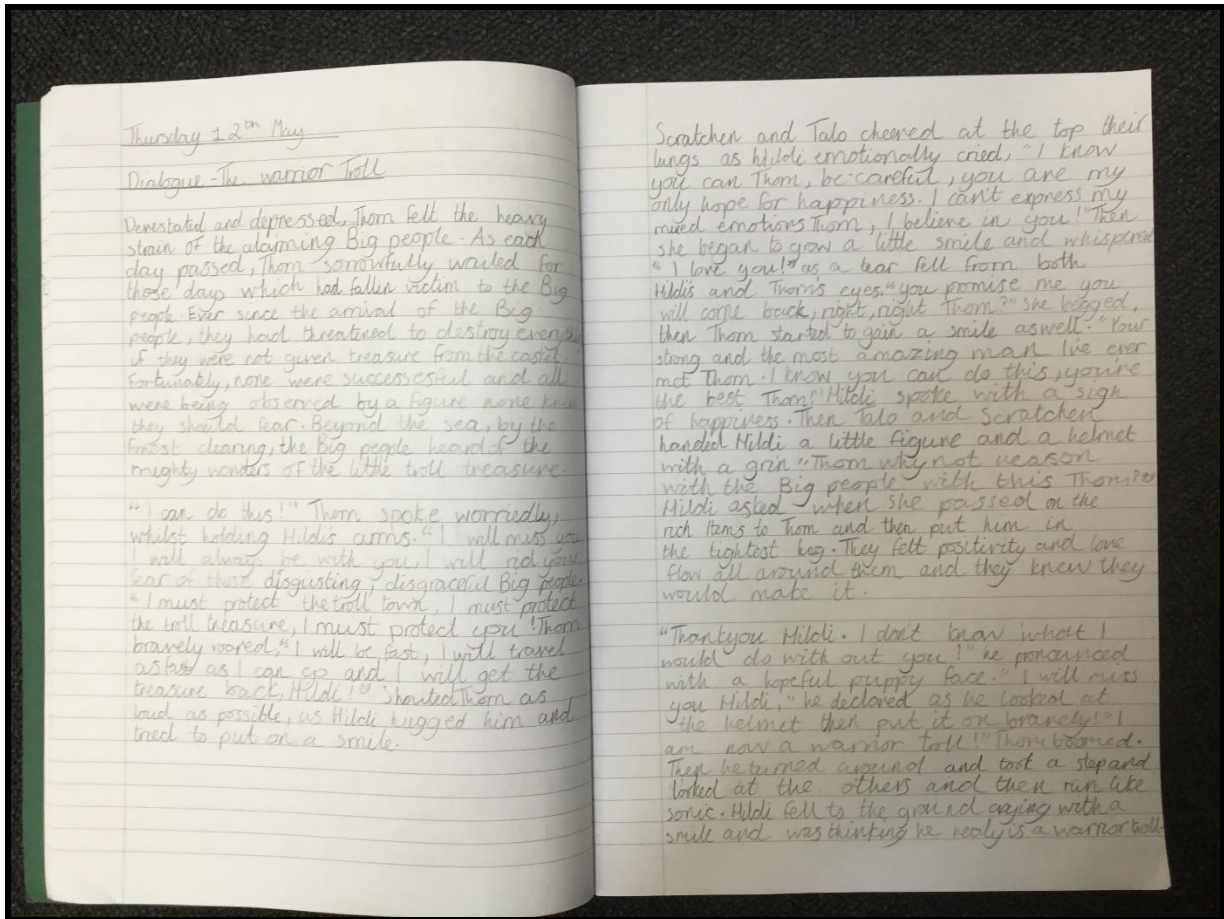 Thursday 12th May
Dialogue - The warrior Troll
Devestated and depressed, Thom felt the heavy
strain of the alarming Big people. As each
day passed, Thom sorrowfully wailed for
those days which had fallen victim to the Big
people. Ever since the arrival of the Big
people, they had threatened to destroy everything
if they were not given treasure from the castel.
Fortunately, none were successesful and all
were being observed by a figure none knew
they should fear. Beyond the sea, by the
forest clearing, the Big people heard of the
mughty wonders of the little troll treasure.
"I can do this!" Thom spoke worriedly,
whilst holding Hildis arms. "I will miss you
I will always be with you, I will rid your
fear of those disgusting, disgraceful Big people.
"I must protect the troll town, I must protect
the troll treasure, I must protect you! Thom
bravely roared, "I will be fast, I will travel
as fast as I can go and I will get the
treasure back, Hildi!" Shouted Thom as
loud as possible, as Hildi hugged him and
tried to put on a smile.
Scratchen and Talo cheered at the top their
lungs as hildi emotionally cried, "I know
you can Thom, be careful, you are my
only hope for happiness. I can't express my
mixed emotions Thom, I believe in you!" Then
she began to grow a little smile and whispered
"I love you!" as a tear fell from both
Hildi's and Thom's eyes. "you promise me you
will come back, right, right Thom?" She begged,
then Thom started to gain a smile aswell. "Your
strong and the most amazing man I've ever
met Thom. I know you can do this, you're
the best Thom!" Hildi spoke with a sigh
of happiness. Then Talo and Scratchen
handed Hildi a little figure and a helmet
with a grin "Thom why not reason
with the Big people with this Thom?"
Hildi asked when she passed on the
rich items to Thom and then put him in
the tightest hug. They felt positivity and love
flow all around them and they knew they
would make it.
"Thankyou Hildi. I don't know what I
would do with out you!" he pronounced
with a hopeful puppy face. "I will miss
you Hildi," he declared as he looked at
the helmet then put it on bravely! "I
am now a warrior troll!" Thom boomed.
Then he turned around and toot a step and
looked at the others and then run like
sonic. Hildi fell to the ground crying with a
smile and was thinking he realy is a warrior troll.